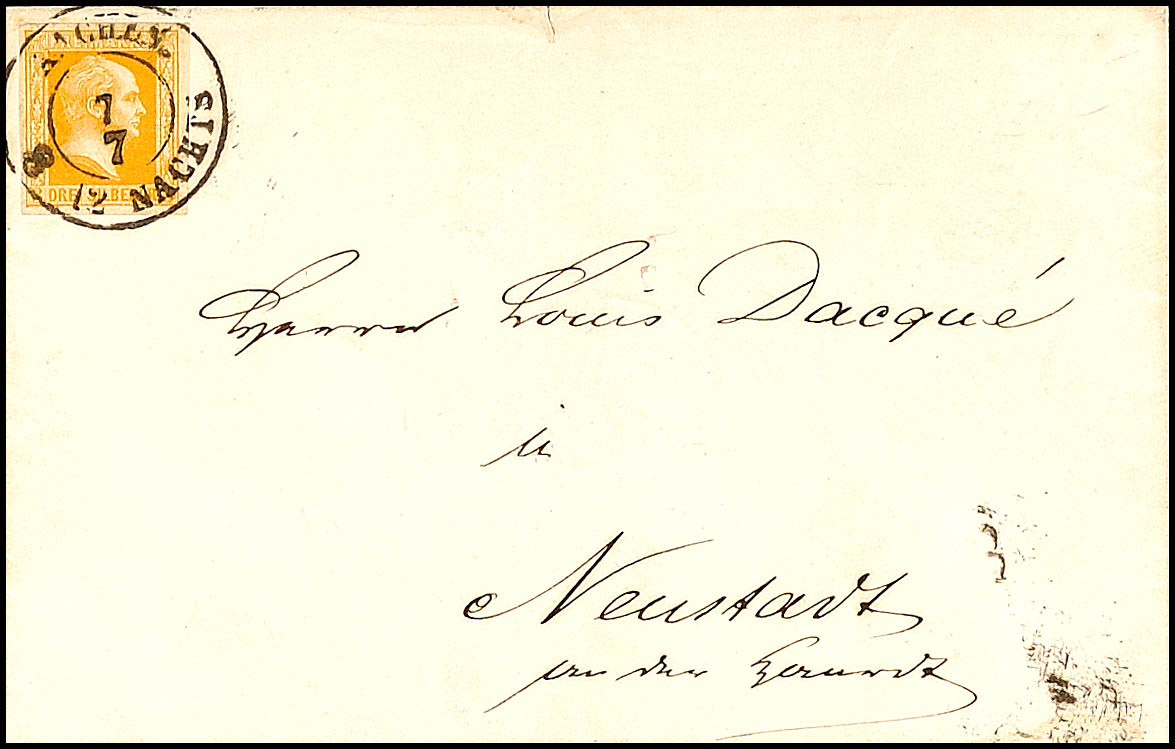 AACHEN
7
7
8
12 NACHTS
DREI SILBERGR.
Herrn Louis Dacqué
in
Neustadt
an der Haardt